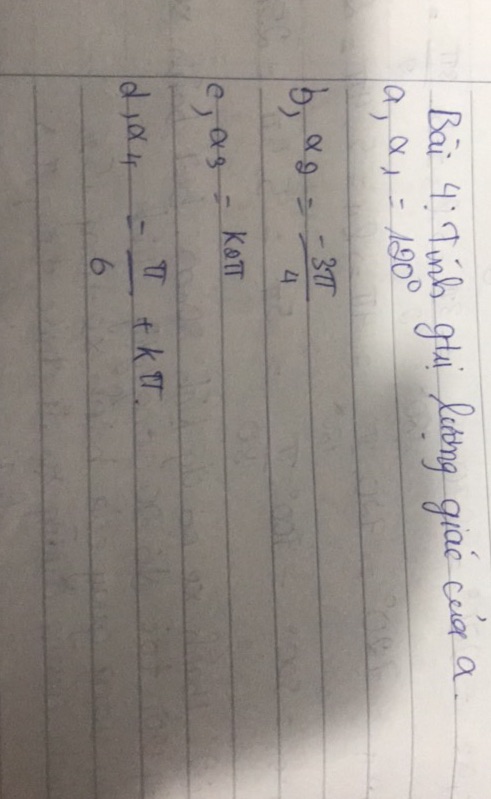 Bài 4: Tính gtrị lượng giác của α.
a, α₁ = 120°
b, α₂ = -3π/4
c, α₃ = k2π
d, α₄ = π/6 + kπ.